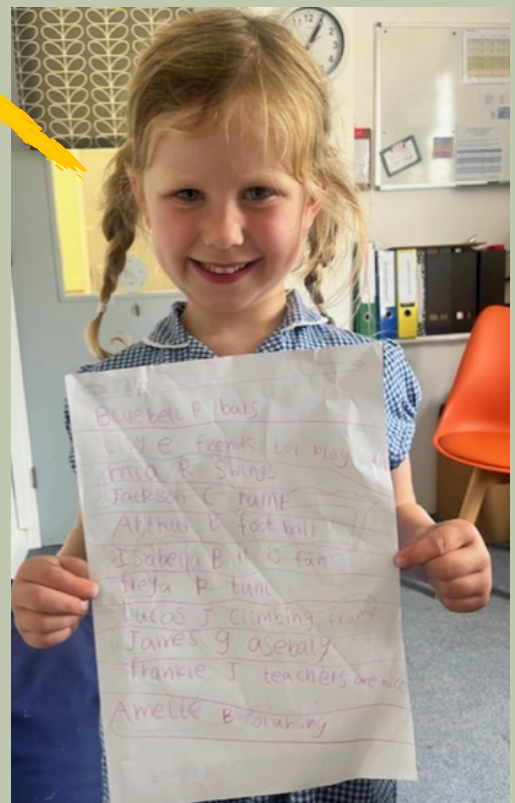 Bluebell R bars
Lily e frends tor play
mia R Swings
Jackson C ramp
Arthur D foot ball
Isabella B it is fun
freya R
Lucas J Climbing frame
James g asebaly
frankie J teachers are nice
Amelie B Colouring